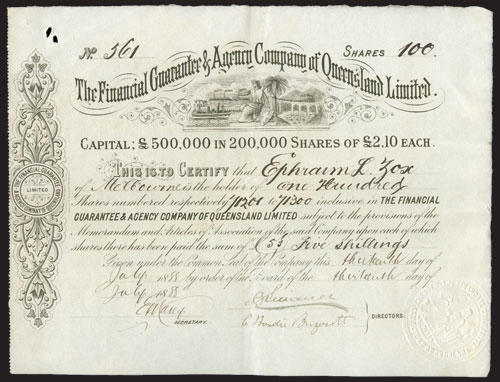 No. 561 SHARES 100.
The Financial Guarantee & Agency Company of Queensland Limited.
CAPITAL; £500,000 IN 200,000 SHARES OF £2.10 EACH.
THIS IS TO CERTIFY that Ephraim L. Zox
of Melbourne is the holder of One Hundred
Shares numbered respectively 11201 to 11300 inclusive, in THE FINANCIAL
GUARANTEE & AGENCY COMPANY OF QUEENSLAND LIMITED subject to the provisions of the
Memorandum and Articles of Association of the said Company upon each of which
shares there has been paid the sum of Five Shillings
Given under the Common Seal of the Company this thirteenth day of
July 1888 by order of the Board of the thirteenth day of
July 1888
SECRETARY.
DIRECTORS.
THE FINANCIAL GUARANTEE
LIMITED